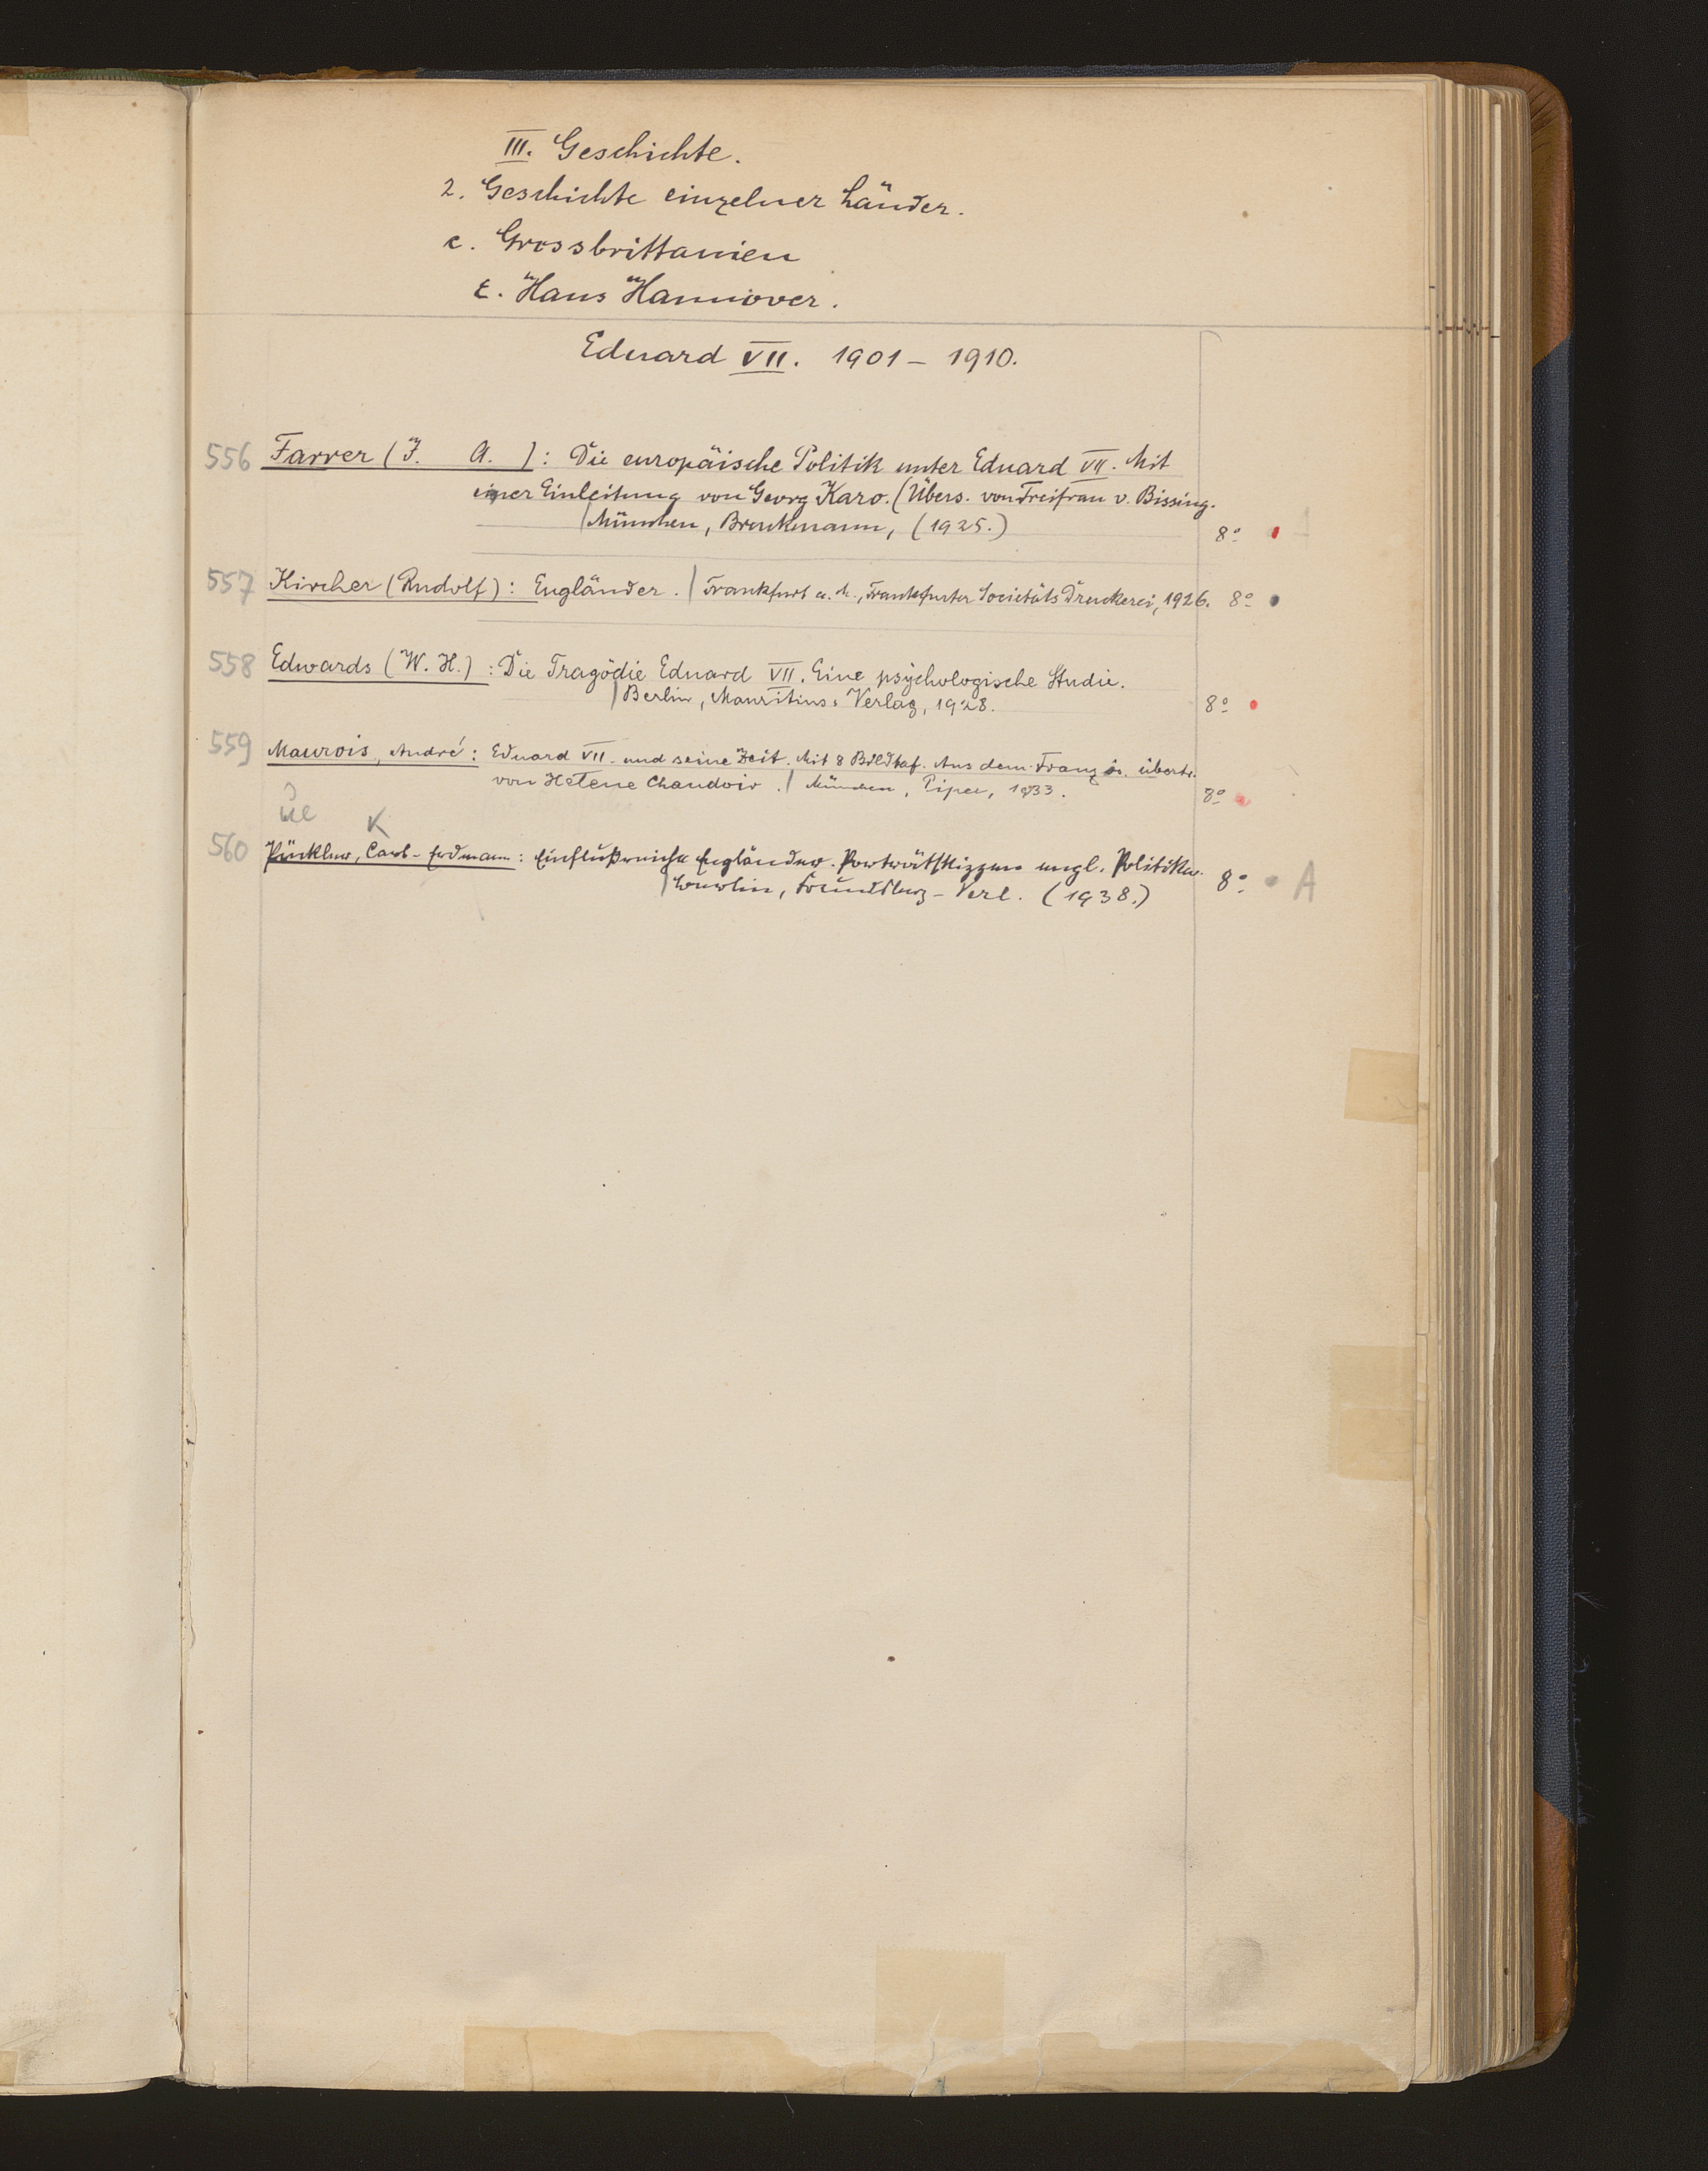 III. Geschichte.
2. Geschichte einzelner Länder.
c. Grossbrittanien
ε. Haus Hannover.
Eduard VII. 1901 – 1910.
556 Farrer (J. A. ): Die europäische Politik unter Eduard VII. Mit
einer Einleitung von Georg Karo. (Übers. von Freifrau v. Bissing.
| München, Bruckmann, (1925.) 8°
557 Kircher (Rudolf): Engländer. | Frankfurt a. M., Frankfurter Societäts Druckerei, 1926. 8°
558 Edwards (W. H.): Die Tragödie Eduard VII. Eine psychologische Studie.
| Berlin, Mauritius-Verlag, 1928. 8°
559 Maurois, André: Eduard VII. und seine Zeit. Mit 8 Bildtaf. Aus dem Französ. übertr.
von Helene Chaudoir. | München, Piper, 1933. 8°
ue K
560 Pückler, Carl-Erdmann: Einflußreiche Engländer. Porträtskizzen engl. Politiker.
| Berlin, Verl. (1938.) 8° A